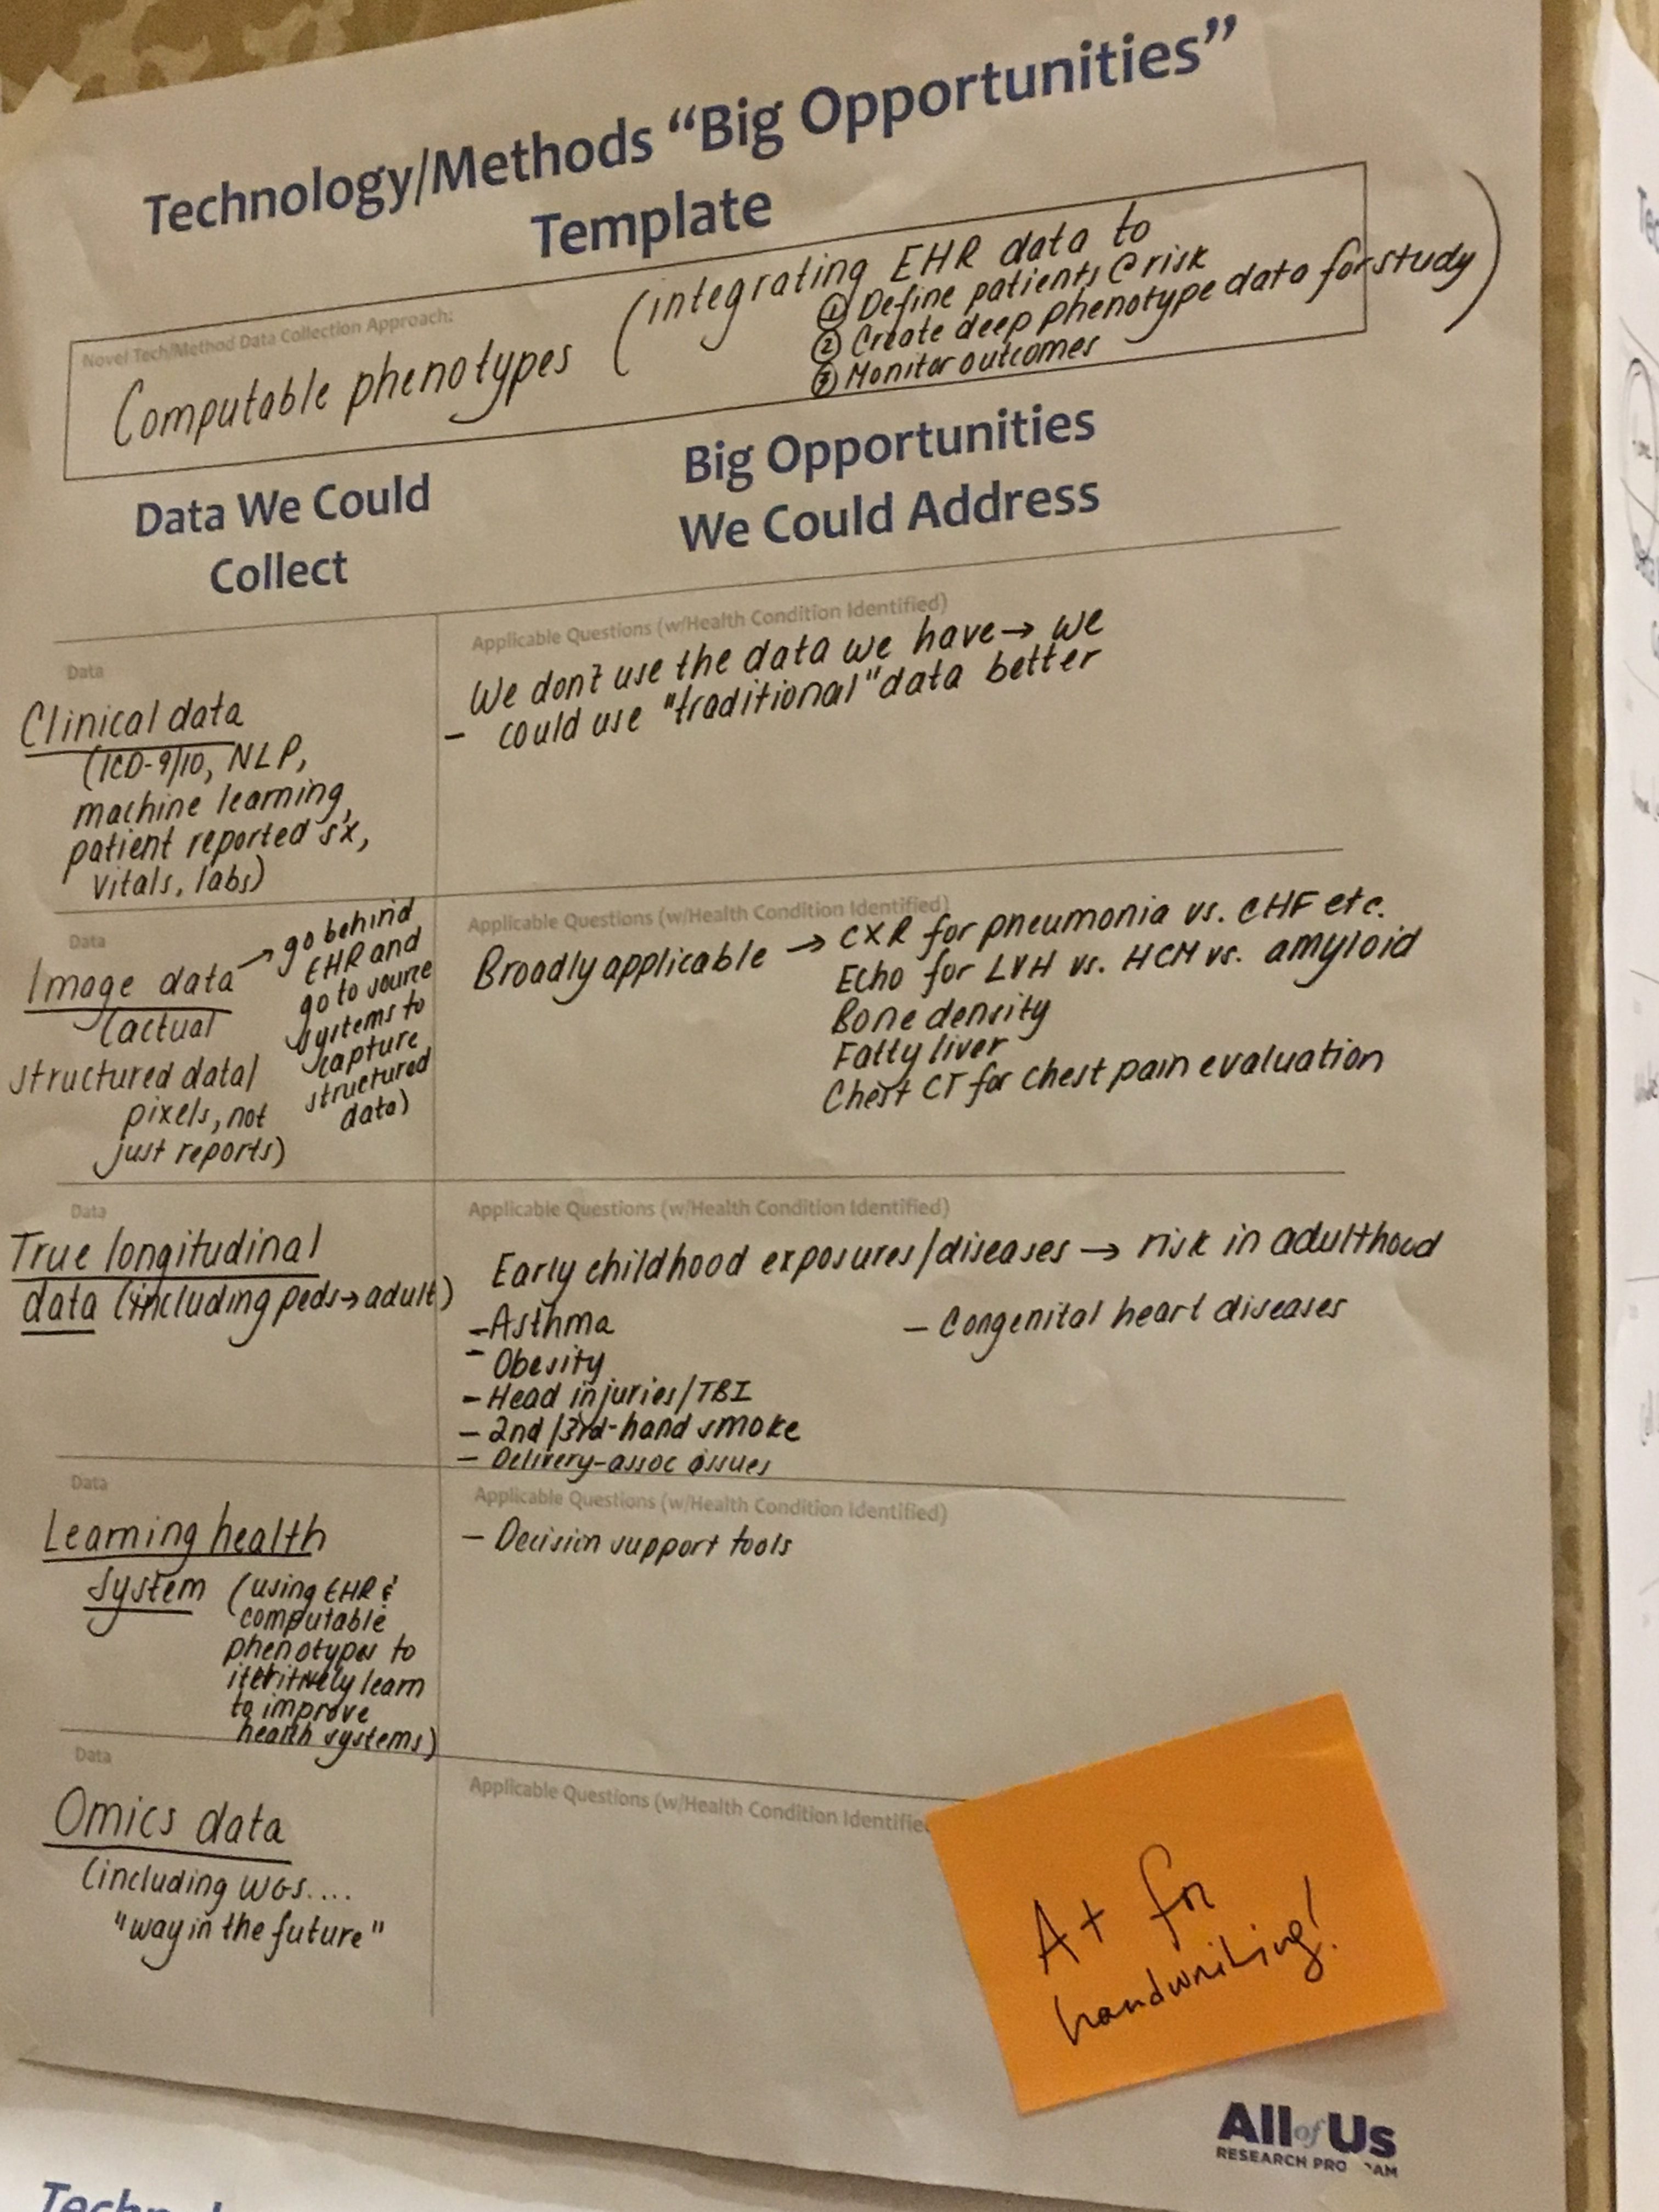 Technology/Methods “Big Opportunities”
Template
Novel Tech/Method Data Collection Approach:
Computable phenotypes (integrating EHR data to
① Define patients @ risk
② Create deep phenotype data for study)
③ Monitor outcomes
Data We Could
Collect
Big Opportunities
We Could Address
Data
Clinical data
(ICD-9/10, NLP,
machine learning,
patient reported sx,
vitals, labs)
Applicable Questions (w/Health Condition Identified)
We don't use the data we have → we
- could use "traditional" data better
Data
Image data
(actual
structured data/
pixels, not
just reports)
→ go behind
EHR and
go to source
systems to
capture
structured
data)
Applicable Questions (w/Health Condition Identified)
Broadly applicable → CXR for pneumonia vs. CHF etc.
Echo for LVH vs. HCM vs. amyloid
Bone density
Fatty liver
Chest CT for chest pain evaluation
Data
True longitudinal
data (including peds → adult)
Applicable Questions (w/Health Condition Identified)
Early childhood exposures/diseases → risk in adulthood
- Asthma
- Obesity
- Head injuries/TBI
- 2nd/3rd-hand smoke
- Delivery-assoc issues
- Congenital heart diseases
Data
Learning health
system (using EHR &
computable
phenotypes to
iteritively learn
to improve
health systems)
Applicable Questions (w/Health Condition Identified)
- Decision support tools
Data
Omics data
(including WGS....
"way in the future"
Applicable Questions (w/Health Condition Identifie
A+ for
handwriting!
All of Us
RESEARCH PRO AM